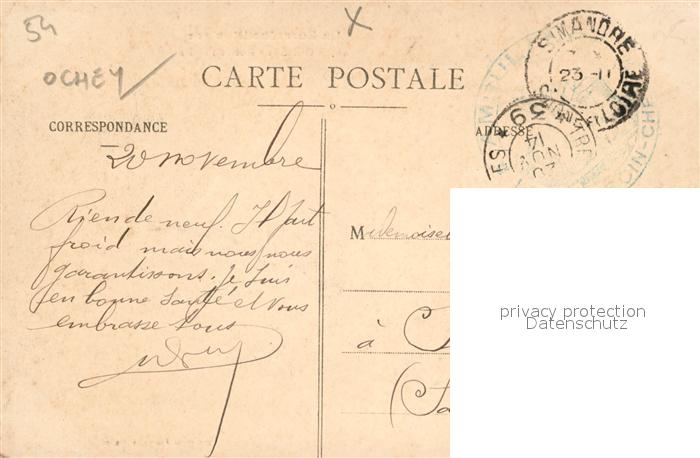 54
X
OCHEY
CARTE POSTALE
SIMANDRE
23-11
LOIRE
39
14
NOV
20
CORRESPONDANCE
ADRESSE
20 novembre
Rien de neuf. Il fait
froid mais nous nous
garantissons. Je suis
en bonne santé et vous
embrasse tous
Mademoisel
à
privacy protection
Datenschutz